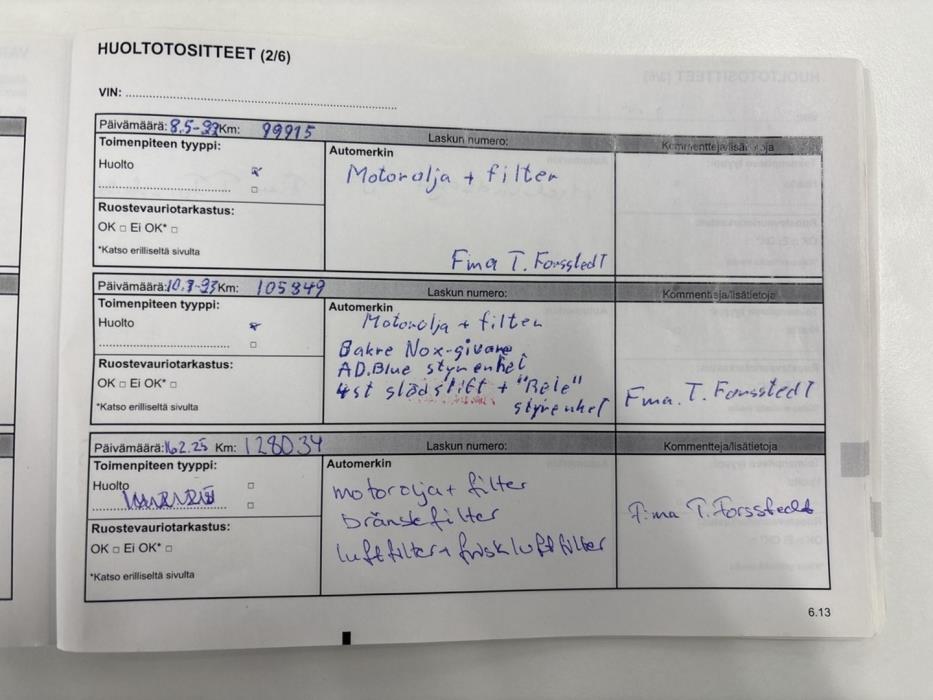 HUOLTOTOSITTEET (2/6)
VIN:
Päivämäärä: 8.5-23 Km: 99915 Laskun numero: Kommentteja/lisätietoja
Toimenpiteen tyyppi: Automerkin
Huolto
Motorolja + filter
Ruostevauriotarkastus:
OK □ Ei OK* □
*Katso erilliseltä sivulta
Fma T. Forsstedt
Päivämäärä: Km: 105849 Laskun numero: Kommentteja/lisätietoja
Toimenpiteen tyyppi: Automerkin
Huolto
Motorolja + filter
Bakre Nox-givare,
AD.Blue styrenhet
Ruostevauriotarkastus:
OK □ Ei OK* □
4st glödstift + "Rele"
styrenhet
Fma. T. Forsstedt
*Katso erilliseltä sivulta
Päivämäärä: 16.2.25 Km: 128034 Laskun numero: Kommentteja/lisätietoja
Toimenpiteen tyyppi: Automerkin
Huolto
motorolja + filter
bränslefilter
Fima T. Forsstedt
Ruostevauriotarkastus:
OK □ Ei OK* □
luftfilter + friskluftfilter
*Katso erilliseltä sivulta
6.13